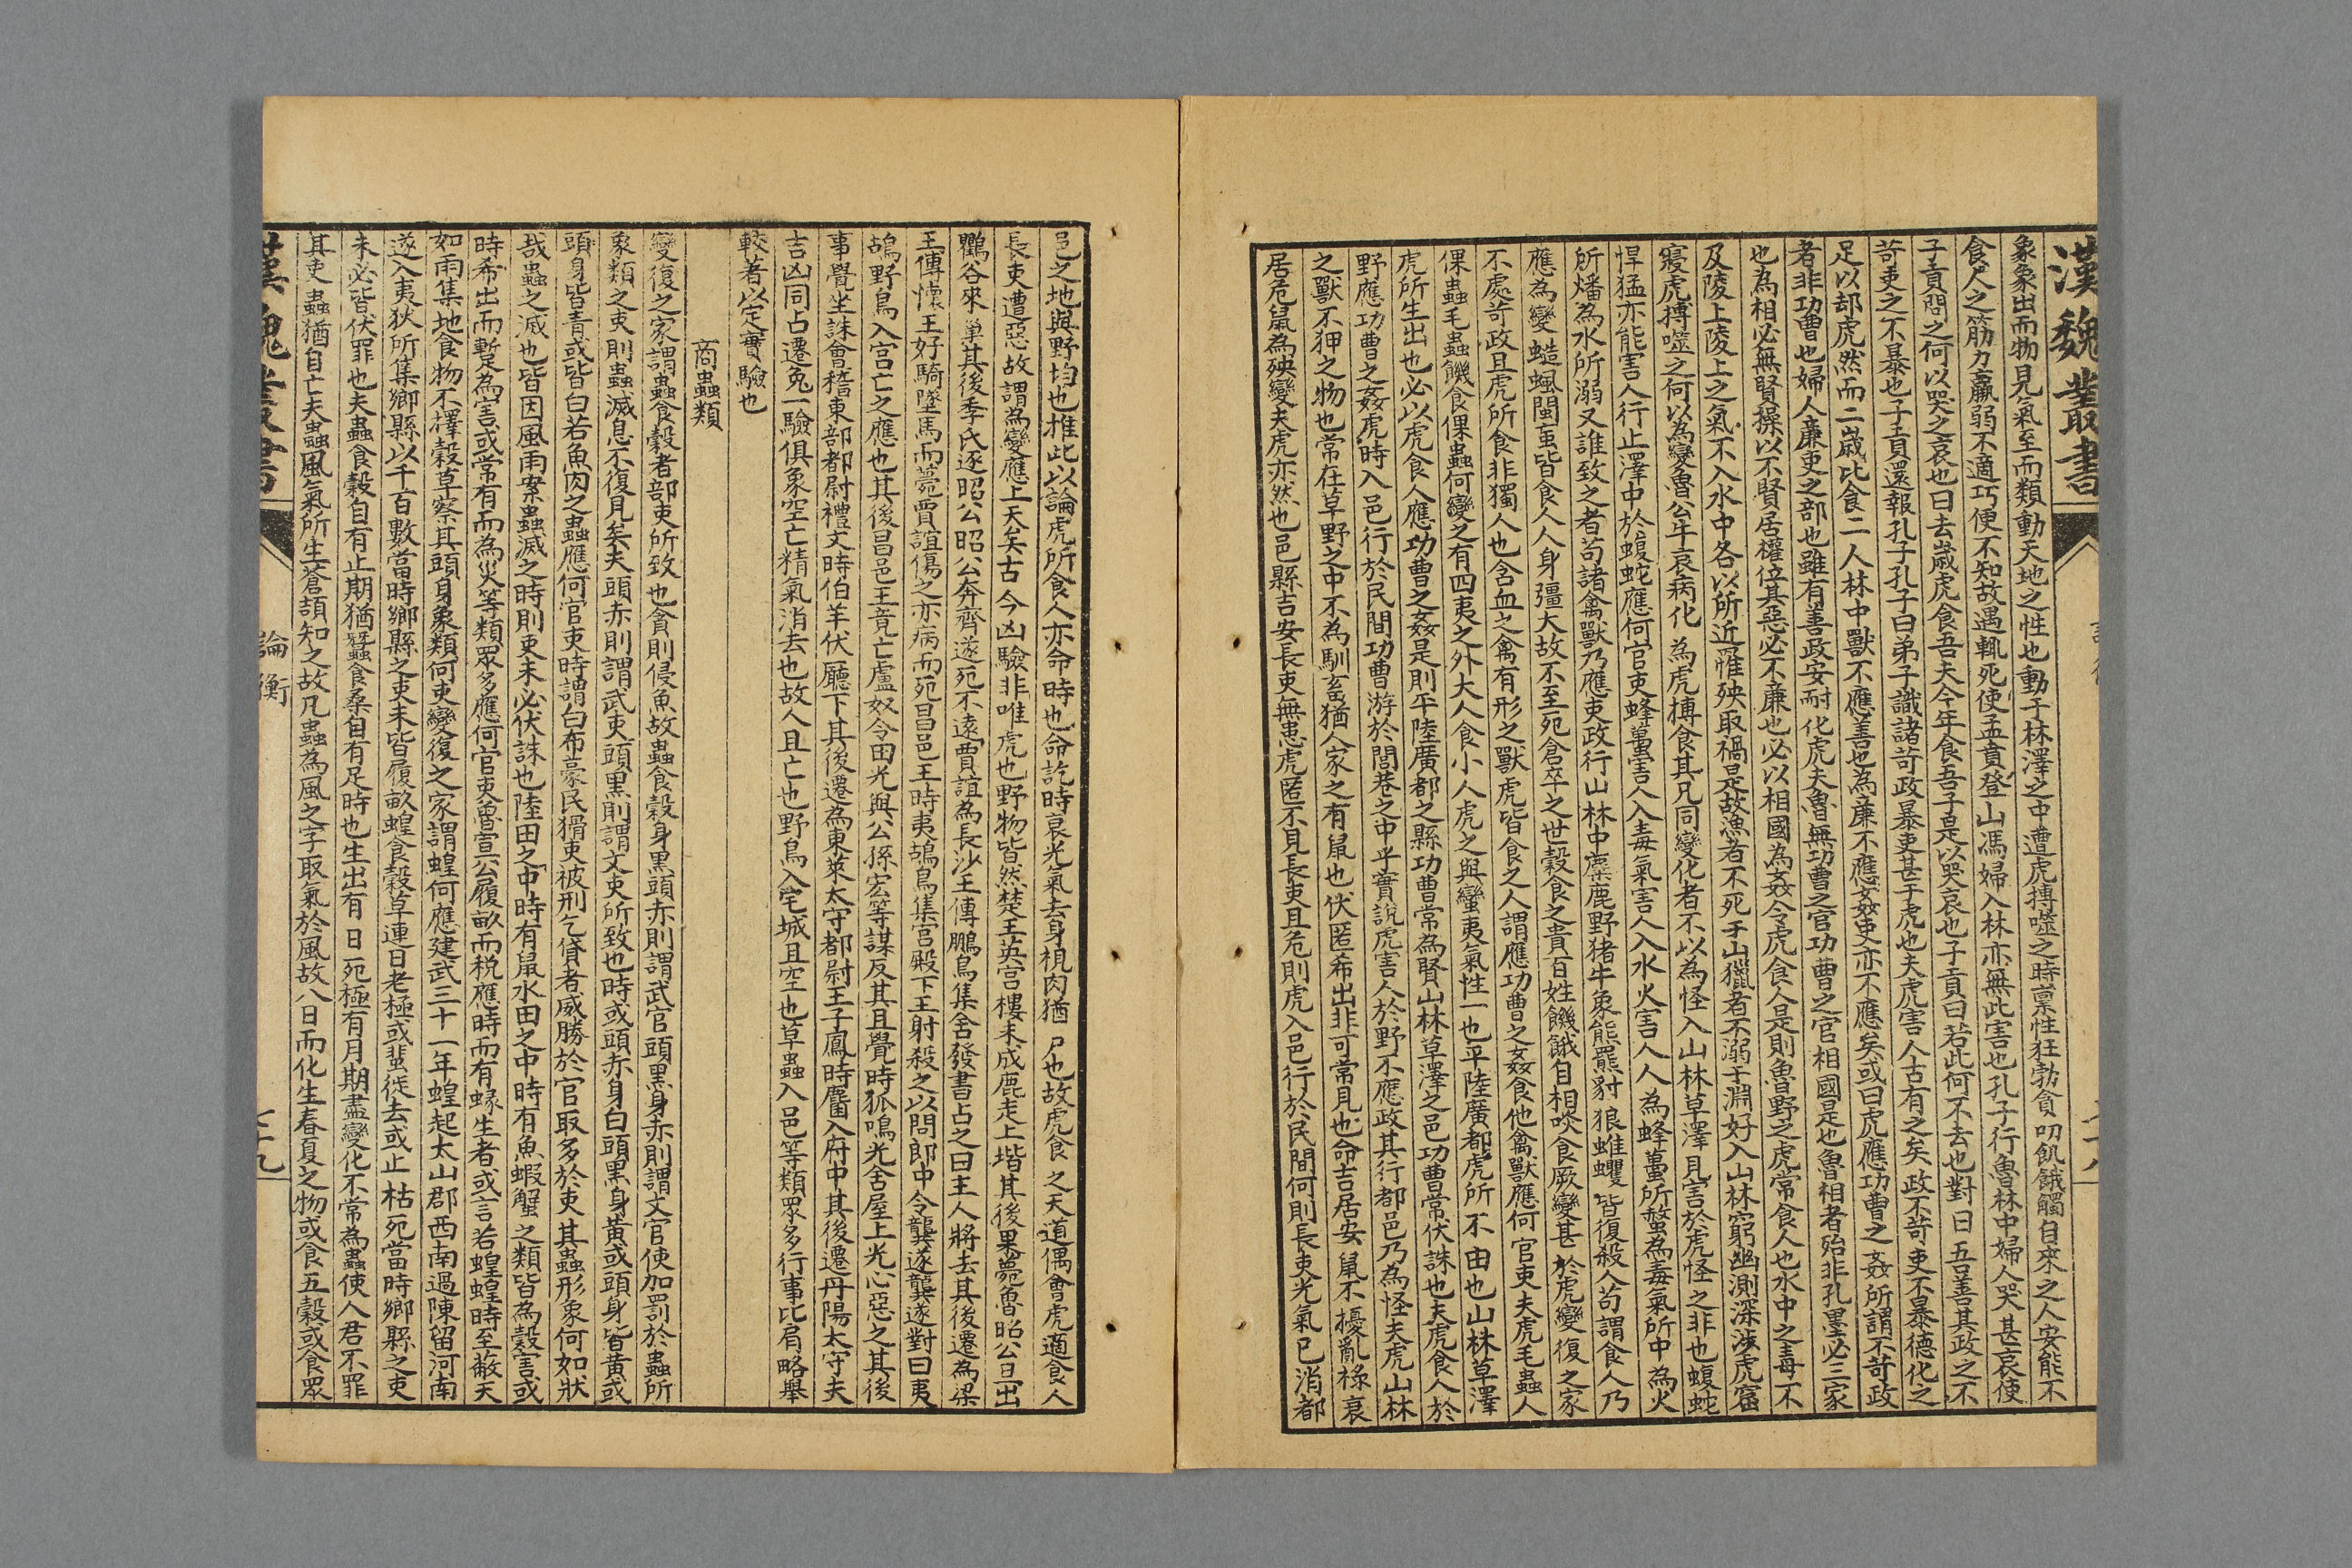 漢魏叢書
象象出而物見氣至而類動天地之性也動于林澤之中遭虎搏噬之時稟性狂勃貪叨飢餓觸自來之人安能不
食人之筋力羸弱不適巧便不知故遇輒死使孟賁登山馮婦入林亦無此害也孔子行魯林中婦人哭甚哀使
子貢問之何以哭之哀也曰去歲虎食吾夫今年食吾子是以哭哀也子貢曰若此何不去也對曰吾善其政之不
苛吏之不暴也子貢還報孔子孔子曰弟子識諸苛政暴吏甚于虎也夫虎害人古有之矣政不苛吏不暴德化之
足以郤虎然而二歲比食二人林中獸不應善也為廉不應姦吏亦不應矣或曰虎應功曹之姦所謂不苛政
者非功曹也婦人廉吏之部也雖有善政安耐化虎夫魯無功曹之官功曹之官相國是也魯相者殆非孔墨必三家
也為相必無賢操以不賢居權位其惡必不廉也必以相國為姦令虎食人是則魯野之虎常食人也水中之毒不
及陵上陵上之氣不入水中各以所近罹殃取禍是故漁者不死于山獵者不溺于淵好入山林窮幽測深涉虎窟
寢虎搏噬之何以為變魯公牛哀病化為虎搏食其兄同變化者不以為怪入山林草澤見害於虎怪之非也蝮蛇
悍猛亦能害人行止澤中於蝮蛇應何官吏蜂蠆害人入毒氣害人入水火害人人為蜂蠆所螫為毒氣所中為火
所燔為水所溺又誰致之者苟諸禽獸乃應吏政行山林中麋鹿野猪牛象熊羆豺狼蜼蠼皆復殺人苟謂食人乃
應為變蚤蝨閩䖟皆食人人身彊大故不至死倉卒之世穀食之貴百姓饑餓自相啖食厥變甚於虎變復之家
不處苛政且虎所食非獨人也含血之禽有形之獸虎皆食之人謂應功曹之姦食他禽獸應何官吏夫虎毛蟲人
倮蟲毛蟲饑食倮蟲何變之有四夷之外大人食小人虎之與蠻夷氣性一也平陸廣都虎所不由也山林草澤
虎所生出也必以虎食人應功曹之姦是則平陸廣都之縣功曹常為賢山林草澤之邑功曹常伏誅也夫虎食人於
野應功曹之姦虎時入邑行於民間功曹游於閭巷之中乎實說虎害人於野不應政其行都邑乃為怪夫虎山林
之獸不狎之物也常在草野之中不為馴畜猶人家之有鼠也伏匿希出非可常見也命吉居安鼠不擾亂祿衰
居危鼠為殃變夫虎亦然也邑縣吉安長吏無患虎匿不見長吏且危則虎入邑行於民間何則長吏光氣已消都
邑之地與野均也推此以論虎所食人亦命時也命訖時衰光氣去身視肉猶尸也故虎食之天道偶會虎適食人
長吏遭惡故謂為變應上天矣古今凶驗非唯虎也野物皆然楚王英宮樓未成鹿走上堦其後果薨魯昭公旦出
鸜谷來巢其後季氏逐昭公昭公奔齊遂死不還賈誼為長沙王傅鵩鳥集舍發書占之曰主人將去其後遷為梁
王傅懷王好騎墜馬而薨賈誼傷之亦病而死昌邑王時夷鴣鳥集宮殿下王射殺之以問郎中令龔遂龔遂對曰夷
鴣野鳥入宮亡之應也其後昌邑王竟亡盧奴令田光與公孫宏等謀反其且覺時狐鳴光舍屋上光心惡之其後
事覺坐誅會稽東部都尉禮文時伯羊伏廳下其後遷為東萊太守都尉王子鳳時麕入府中其後遷丹陽太守夫
吉凶同占遷免一驗俱象空亡精氣消去也故人且亡也野鳥入宅城且空也草蟲入邑等類眾多行事比肩略舉
較著以定實驗也
商蟲類
變復之家謂蟲食穀者部吏所致也貪則侵魚故蟲食穀身黑頭赤則謂武官頭黑身赤則謂文官使加罰於蟲所
象類之吏則蟲滅息不復見矣夫頭赤則謂武吏頭黑則謂文吏所致也時或頭赤身白頭黑身黃或頭身皆黃或
頭身皆青或皆白若魚肉之蟲應何官吏時謂白布豪民猾吏被刑乞貸者威勝於官取多於吏其蟲形象何如狀
哉蟲之滅也皆因風雨案蟲滅之時則吏未必伏誅也陸田之中時有鼠水田之中時有魚蝦蟹之類皆為穀害或
時希出而暫為害或常有而為災等類眾多應何官吏魯宣公履畝而稅應時而有蝝生者或言若蝗蝗時至蔽天
如雨集地食物不擇穀草察其頭身象類何吏變復之家謂蝗何應建武三十一年蝗起太山郡西南過陳留河南
遂入夷狄所集鄉縣以千百數當時鄉縣之吏未皆履畝蝗食穀草連日老極或蜚徙去或止枯死當時鄉縣之吏
未必皆伏罪也夫蟲食穀自有止期猶蠶食桑自有足時也生出有日死極有月期盡變化不常為蟲使人君不罪
其吏蟲猶自亡夫蟲風氣所生蒼頡知之故凡蟲為風之字取氣於風故八日而化生春夏之物或食五穀或食眾
漢魏叢書
論衡